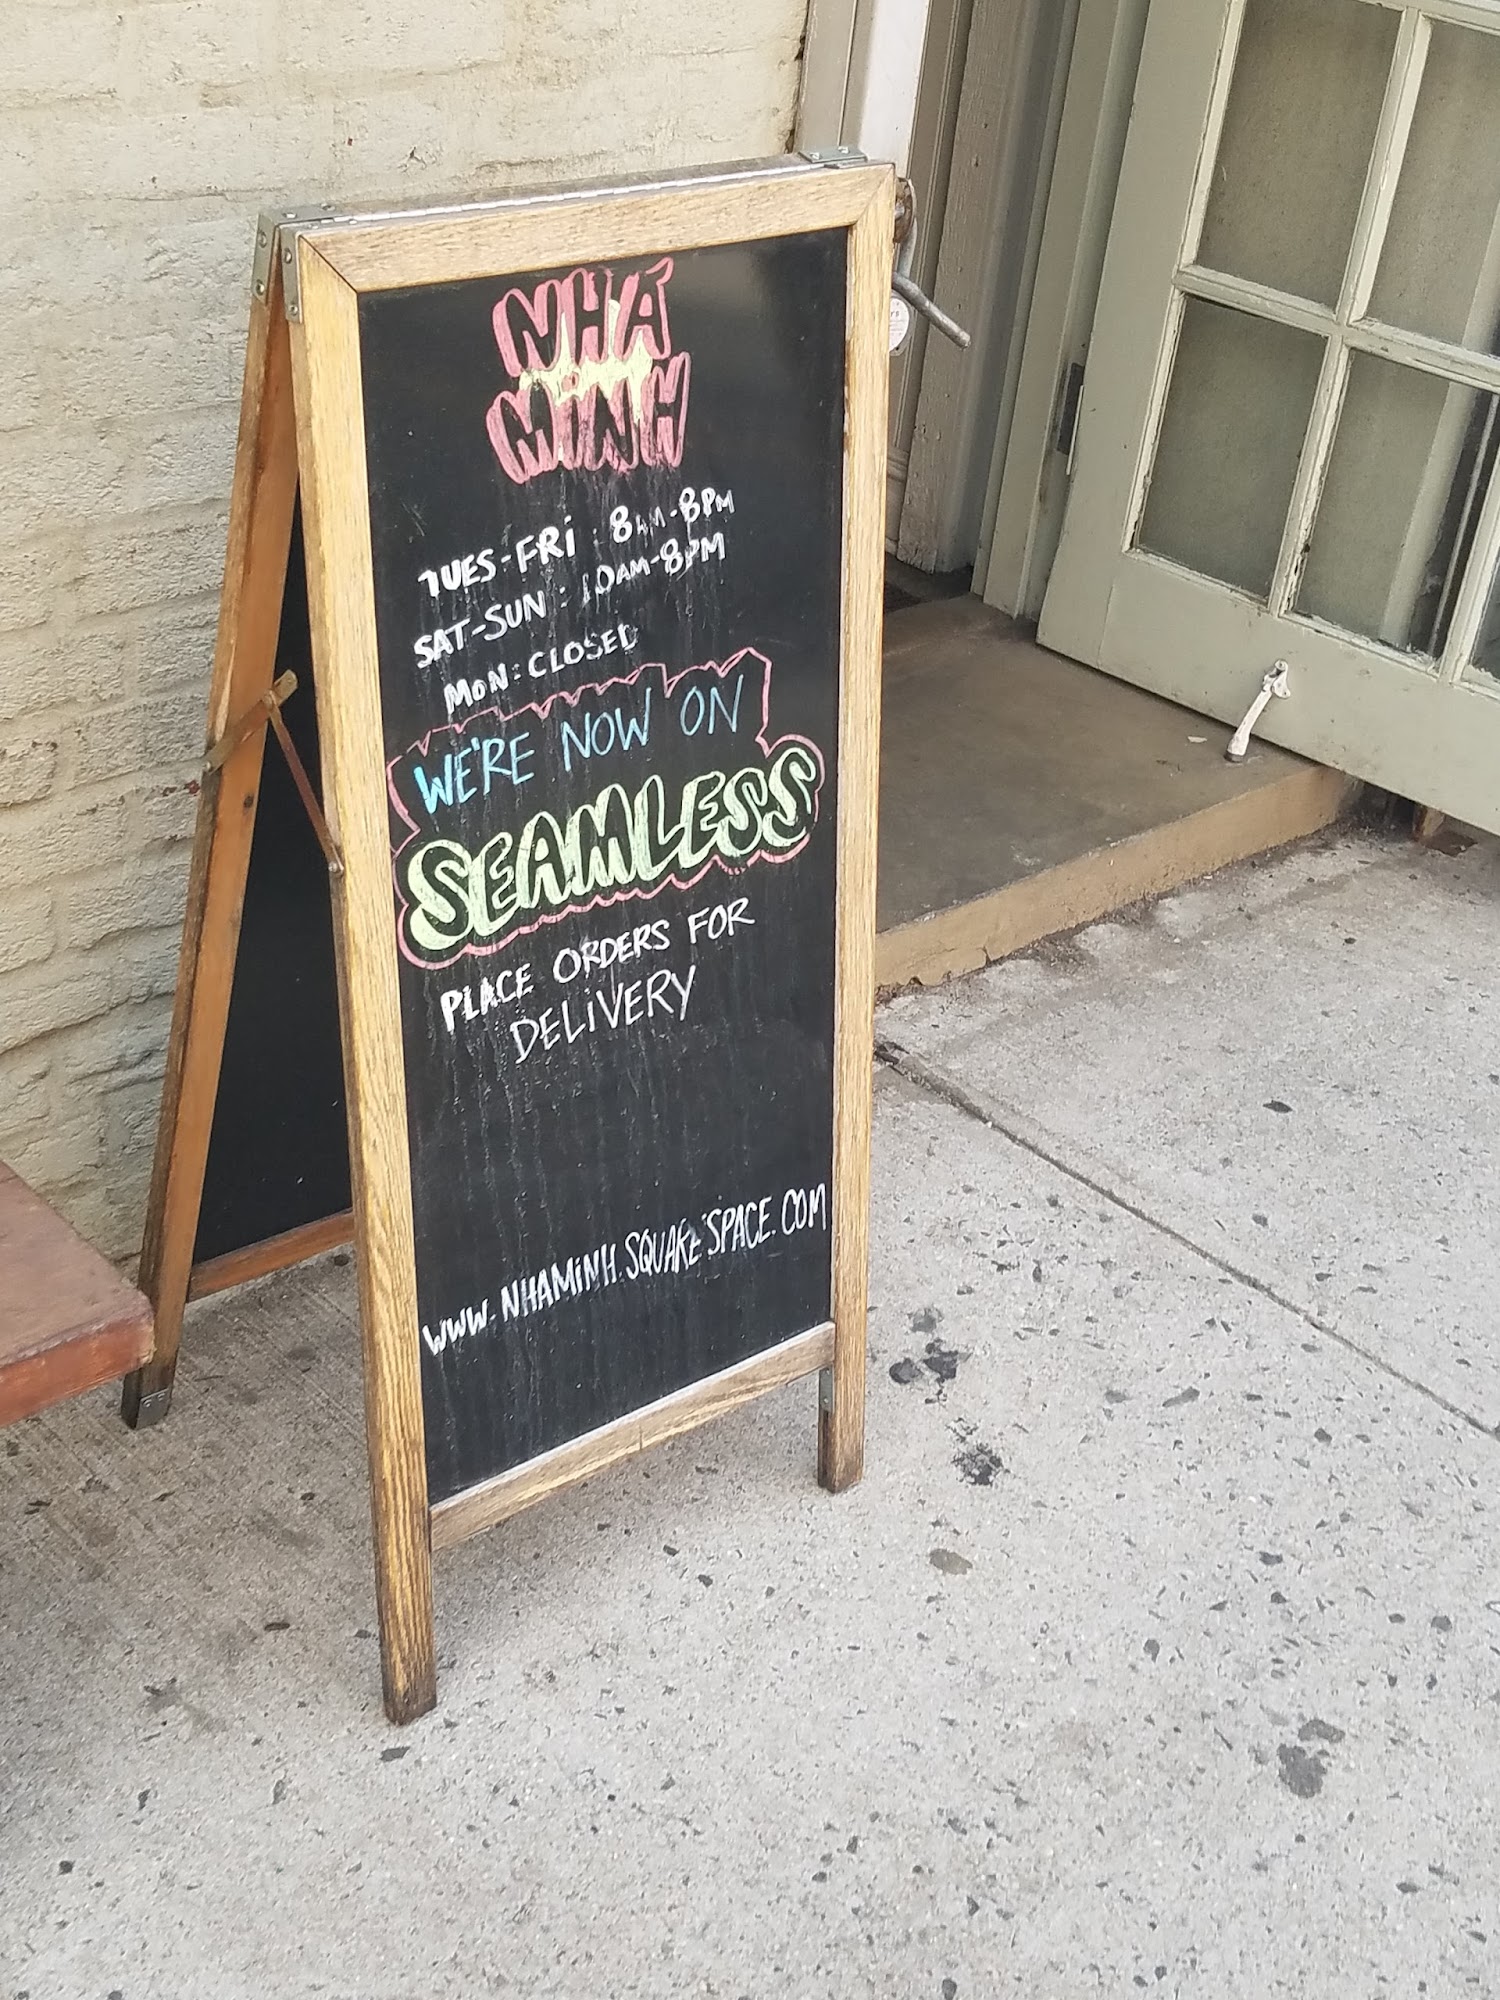 NHÀ
MINH
TUES-FRI: 8AM-8PM
SAT-SUN: 10AM-8PM
MON: CLOSED
WE'RE NOW ON
SEAMLESS
PLACE ORDERS FOR
DELIVERY
WWW.NHAMINH.SQUARESPACE.COM